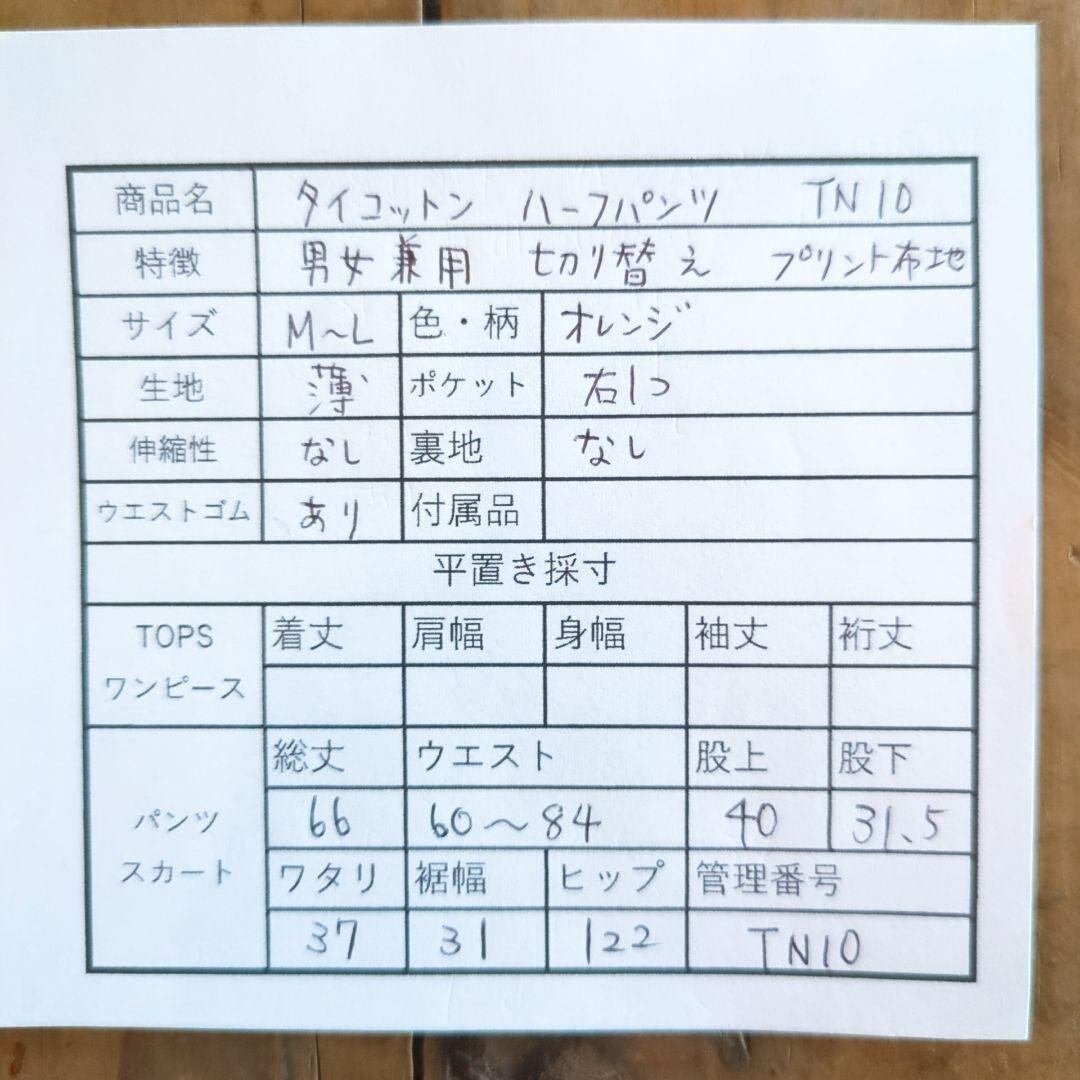 商品名 タイコットン ハーフパンツ TN10
特徴 男女兼用 切り替え プリント布地
サイズ M~L 色・柄 オレンジ
生地 薄 ポケット 右1つ
伸縮性 なし 裏地 なし
ウエストゴム あり 付属品
平置き採寸
TOPS 着丈 肩幅 身幅 袖丈 裄丈
ワンピース
総丈 ウエスト 股上 股下
パンツ 66 60~84 40 31.5
スカート ワタリ 裾幅 ヒップ 管理番号
37 31 122 TN10